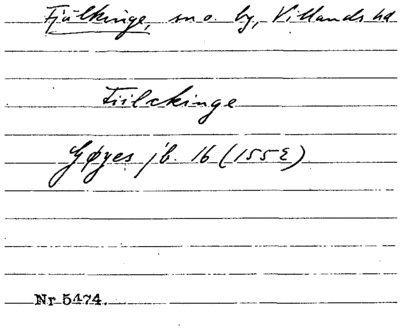 Fjälkinge, sn o. by, Villands hd
Fiilckinge
Gøyes jb. 16 (1552)
Nr 5474.